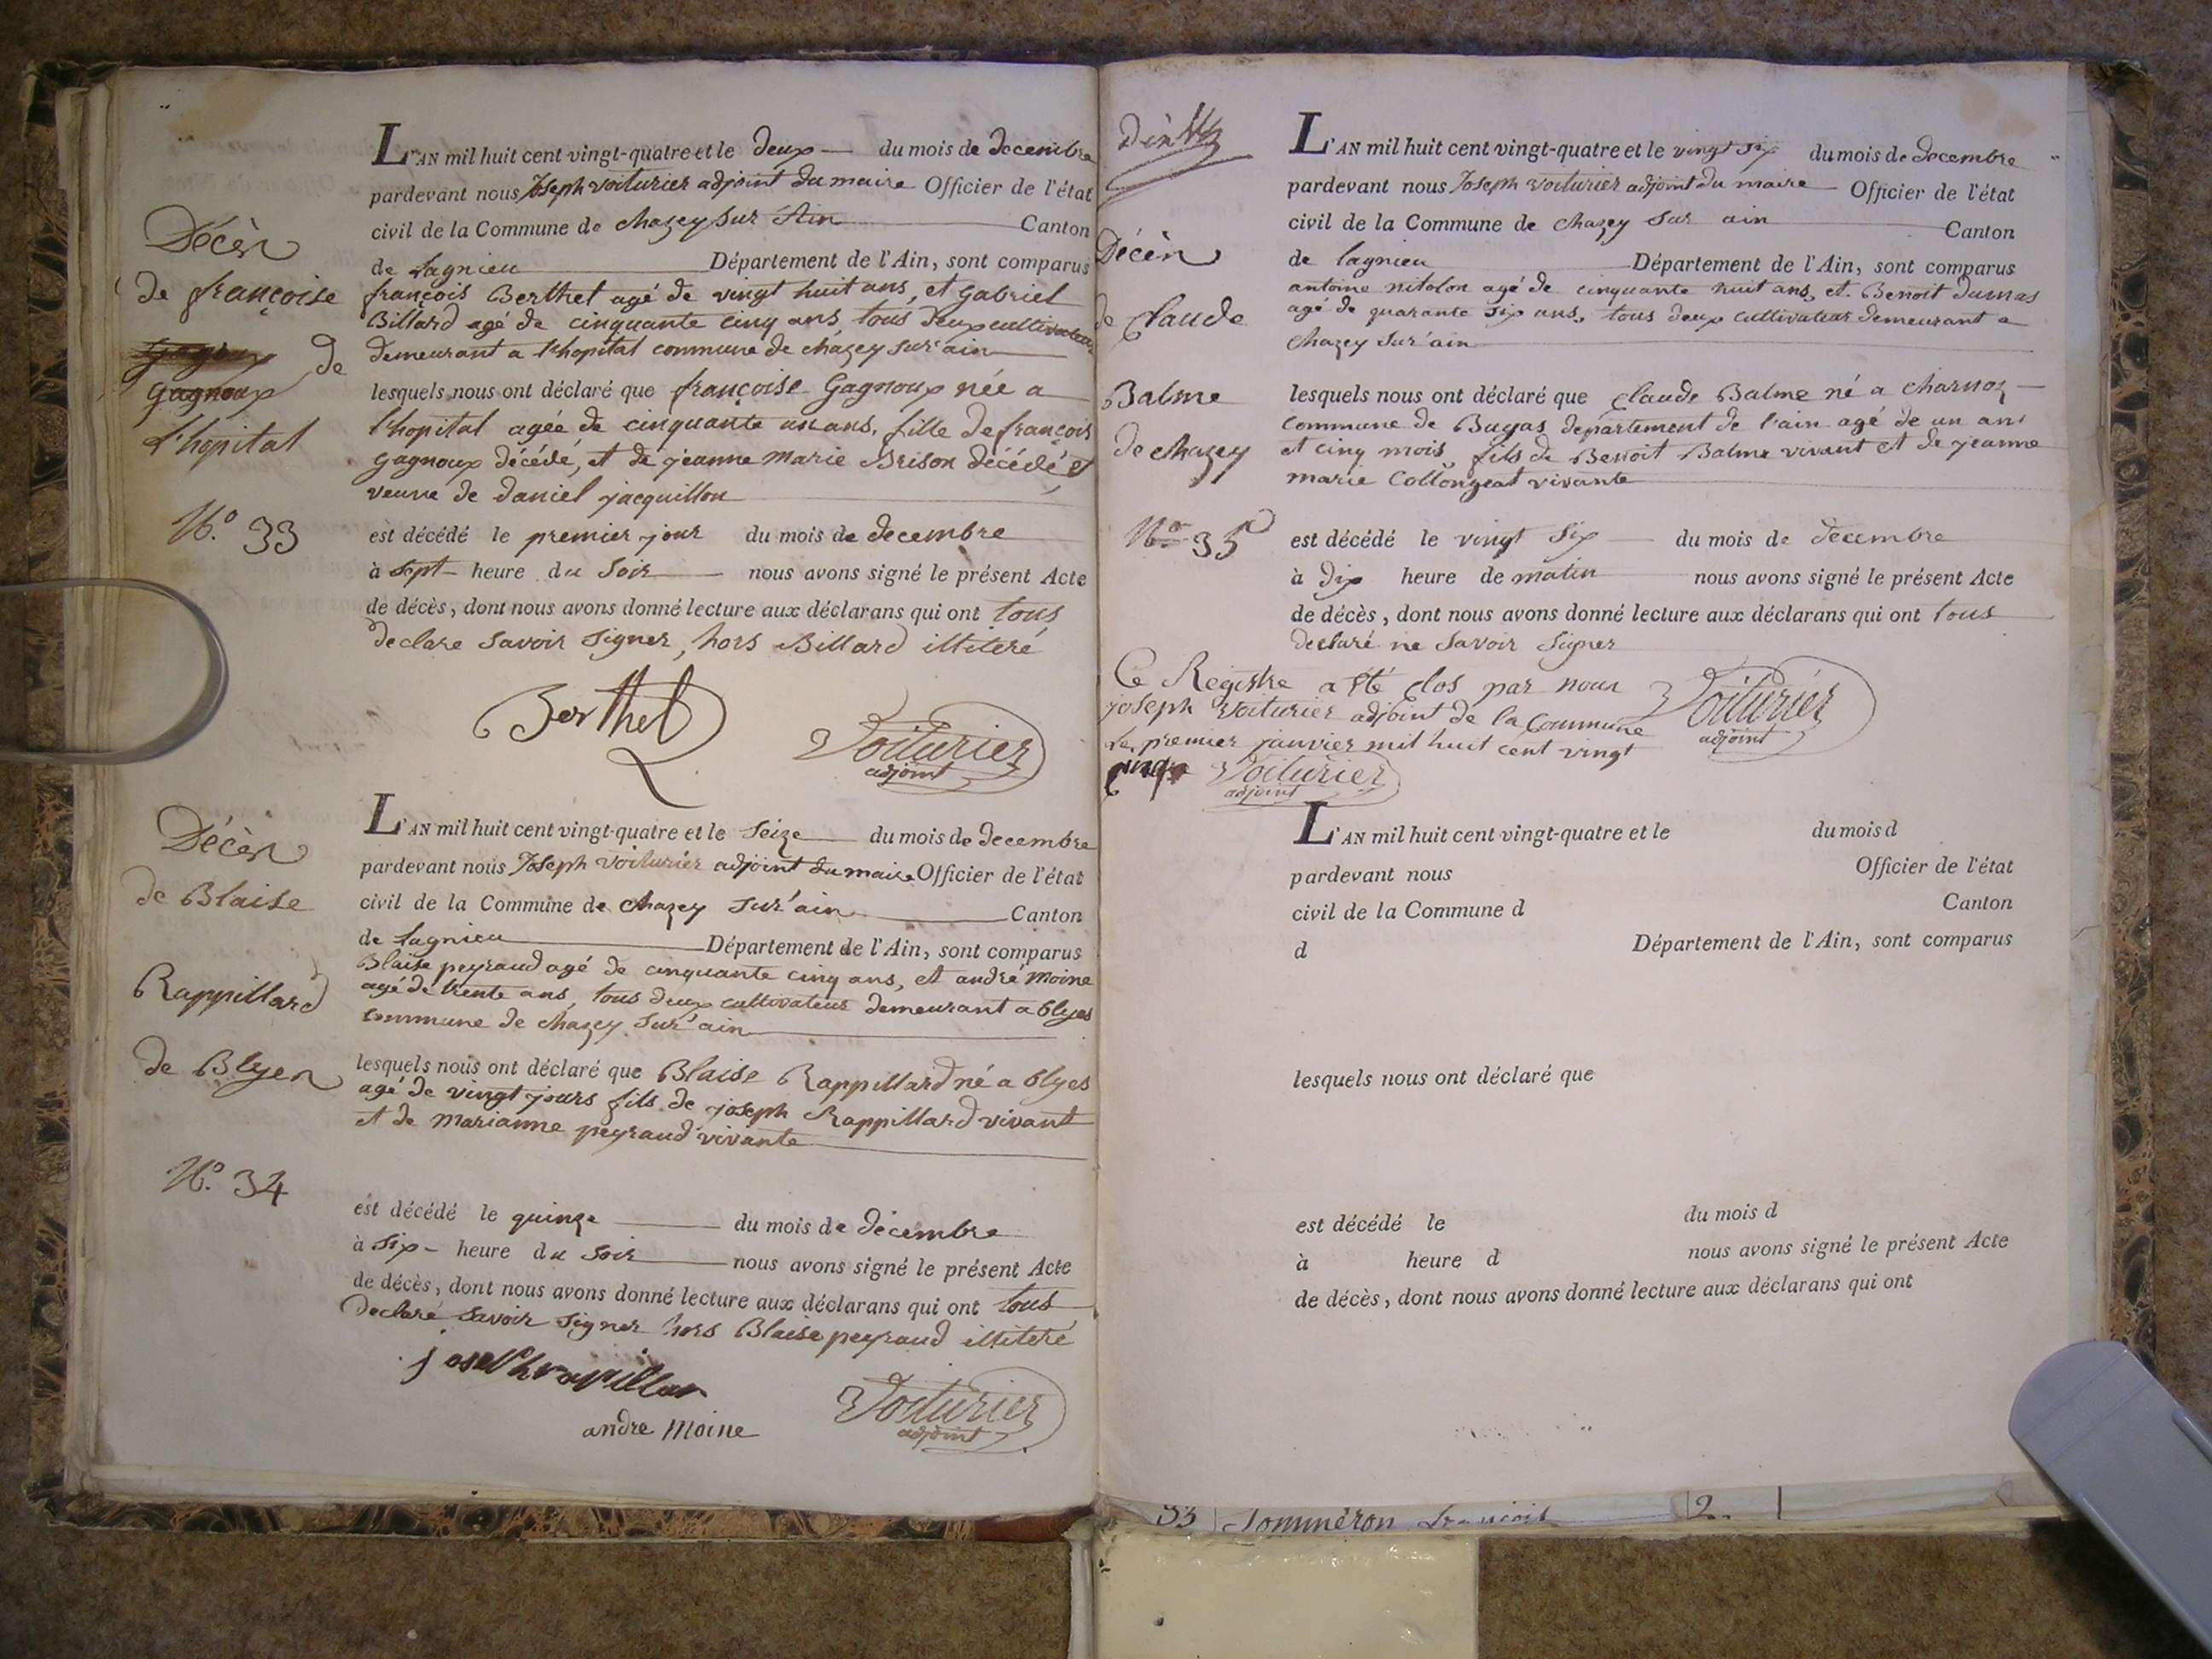 Décès
de françoise
de
Gagnoux
l'hopital
N.º 33
L'AN mil huit cent vingt-quatre et le deux du mois de decembre
pardevant nous Joseph Voiturier adjoint du maire Officier de l'état
civil de la Commune de chazey sur Ain Canton
de Lagnieu Département de l'Ain, sont comparus
françois Berthet agé de vingt huit ans, et Gabriel
Billard agé de cinquante cinq ans, tous deux cultivateurs
demeurant a l'hopital commune de chazey sur ain
lesquels nous ont déclaré que françoise Gagnoux née a
l'hopital agée de cinquante un ans, fille de françois
Gagnoux décédé, et de jeanne marie Brison décédé, et
veuve de daniel jacquillon
est décédé le premier jour du mois de decembre
à sept heure du soir nous avons signé le présent Acte
de décès, dont nous avons donné lecture aux déclarans qui ont tous
declare savoir signer, hors Billard illiteré
Berthet
Voiturier
adjoint
Décès
de Blaise
Rappillard
de Blyes
N.º 34
L'AN mil huit cent vingt-quatre et le seize du mois de decembre
pardevant nous Joseph Voiturier adjoint du maire Officier de l'état
civil de la Commune de chazey sur'ain Canton
de Lagnieu Département de l'Ain, sont comparus
Blaise peyraud agé de cinquante cinq ans, et andré Moine
agé de trente ans, tous deux cultivateur demeurant a blyes
commune de chazey sur'ain
lesquels nous ont déclaré que Blaise Rappillard né a blyes
agé de vingt jours fils de joseph Rappillard vivant
et de Marianne peyraud vivante
est décédé le quinze du mois de décembre
à six heure du soir nous avons signé le présent Acte
de décès, dont nous avons donné lecture aux déclarans qui ont tous
declaré savoir signer hors Blaise peyraud illiteré
joseph rapillar
andre Moine
Voiturier
adjoint
Décès
de Claude
Balme
de chazey
Nº 35
L'AN mil huit cent vingt-quatre et le vingt six du mois de decembre
pardevant nous Joseph Voiturier adjoint du maire Officier de l'état
civil de la Commune de chazey sur ain Canton
de lagnieu Département de l'Ain, sont comparus
antoine nitolon agé de cinquante huit ans, et Benoit dumas
agé de quarante six ans, tous deux cultivateur demeurant a
chazey sur'ain
lesquels nous ont déclaré que claude Balme né a charnoz
commune de Bugas departement de l'ain agé de un an
et cinq mois fils de Benoit Balme vivant et de jeanne
marie Collongeat vivante
est décédé le vingt six du mois de decembre
à dix heure de matin nous avons signé le présent Acte
de décès, dont nous avons donné lecture aux déclarans qui ont tous
declaré ne savoir signer
Ce Registre a été clos par nous
joseph Voiturier adjoint de la Commune
Le premier janvier mil huit cent vingt
cinq
Voiturier
adjoint
Voiturier
adjoint
L'AN mil huit cent vingt-quatre et le du mois d
pardevant nous Officier de l'état
civil de la Commune d Canton
d Département de l'Ain, sont comparus
lesquels nous ont déclaré que
est décédé le du mois d
à heure d nous avons signé le présent Acte
de décès, dont nous avons donné lecture aux déclarans qui ont
53 Pommeron François 2